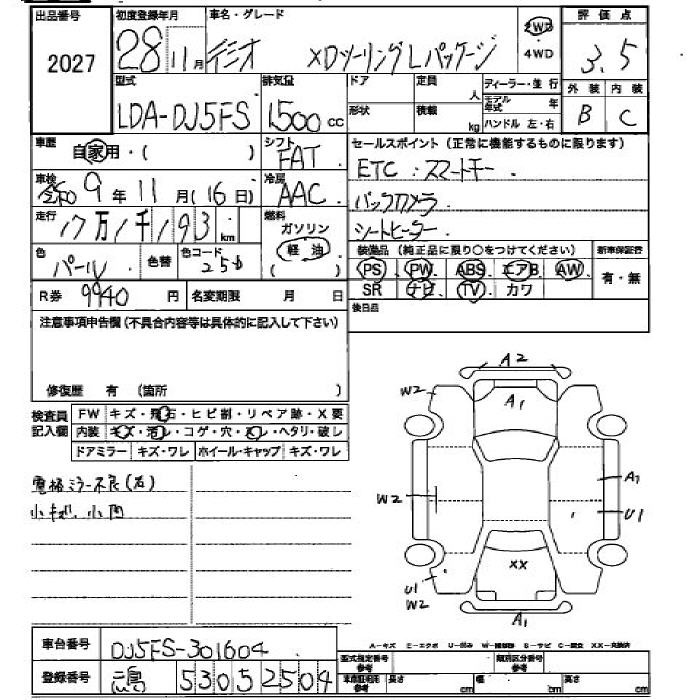 出品番号 初度登録年月 車名・グレード 評価点
2027 28年11月 デミオ XDツーリングLパッケージ 2WD ・4WD 3.5
型式 排気量 ドア 定員 人 ディーラー・並行 外装 内装
LDA-DJ5FS 1500cc 形状 積載 kg モデル年式 年 ハンドル 左・右 B C
車歴 自家用・( ) シフト FAT セールスポイント (正常に機能するものに限ります)
ETC スマートキー
車検 令和9年11月(16日) 冷房 AAC
バックカメラ
走行 17万1千193km 燃料 ガソリン 軽油 ( )
シートヒーター
色 パール 色替 色コード 25D
装備品 (純正品に限り○をつけてください) 新車保証書
PS PW ABS エアB AW 有・無
R券 9940円 名変期限 月 日
SR ナビ TV カワ
後日品
注意事項申告欄(不具合内容等は具体的に記入して下さい)
修復歴 有 (箇所 )
検査員記入欄 FW キズ・飛石・ヒビ割・リペア跡・X要
内装 キズ・汚レ・コゲ・穴・ハレ・ヘタリ・破レ
ドアミラー キズ・ワレ ホイール・キャップ キズ・ワレ
電格ミラー不良(右)
小キズ、小凹
A2
W2
A1
A1
W2
U1
XX
U1
W2
A1
A-キズ E-エクボ U-凹み W-補修跡 S-サビ C-腐食 XX-交換済
車台番号 DJ5FS-301604
型式指定番号 参考 類別区分番号 参考
登録番号 530 52504
車庫証明用 参考 長さ cm 幅 cm 高さ cm